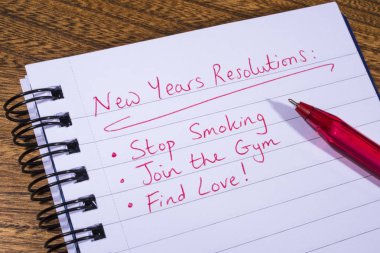 New Years Resolutions:
• Stop Smoking
• Join the Gym
• Find Love!